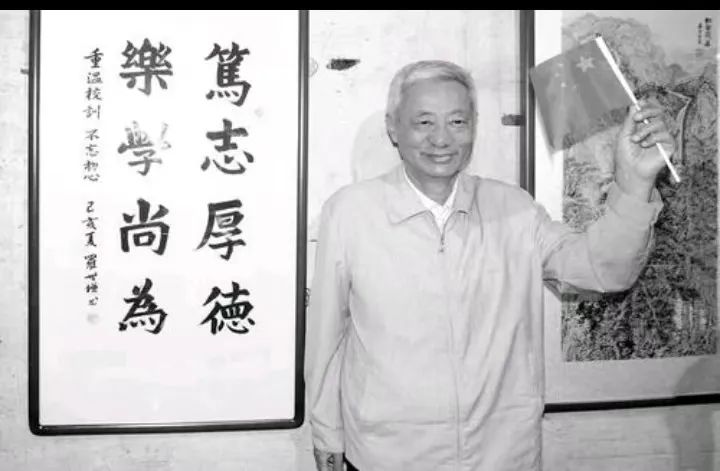 篤志厚德
樂學尚為
重温校訓 不忘初心 己亥夏 羅